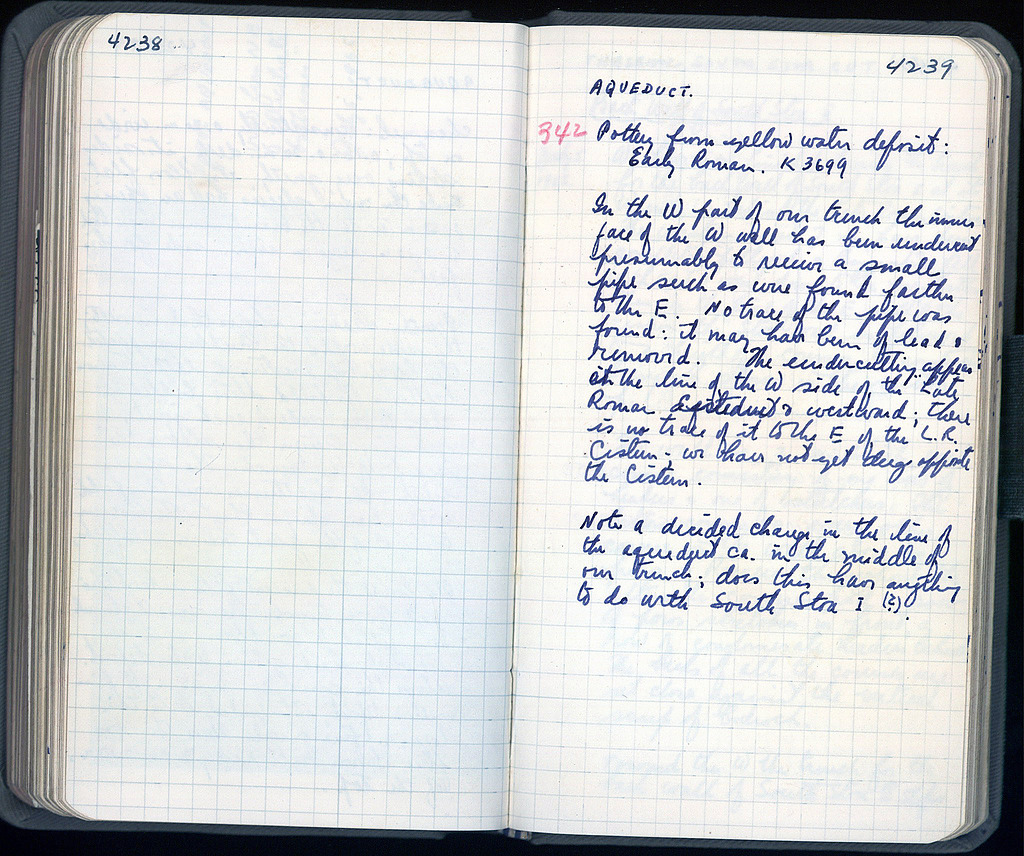 4238
4239
AQUEDUCT.
342 Pottery from yellow water deposit:
Early Roman. K 3699
In the W part of our trench the inner
face of the W wall has been undercut
presumably to receive a small
pipe such as were found farther
to the E. No trace of the pipe was
found: it may have been of lead &
removed. The undercutting appears
at the line of the W side of the Late
Roman & westward; there
is no trace of it to the E of the L.R.
Cistern; we have not yet dug opposite
the Cistern.
Note a decided change in the line of
the aqueduct ca. in the middle of
our trench; does this have anything
to do with South Stoa I (?).